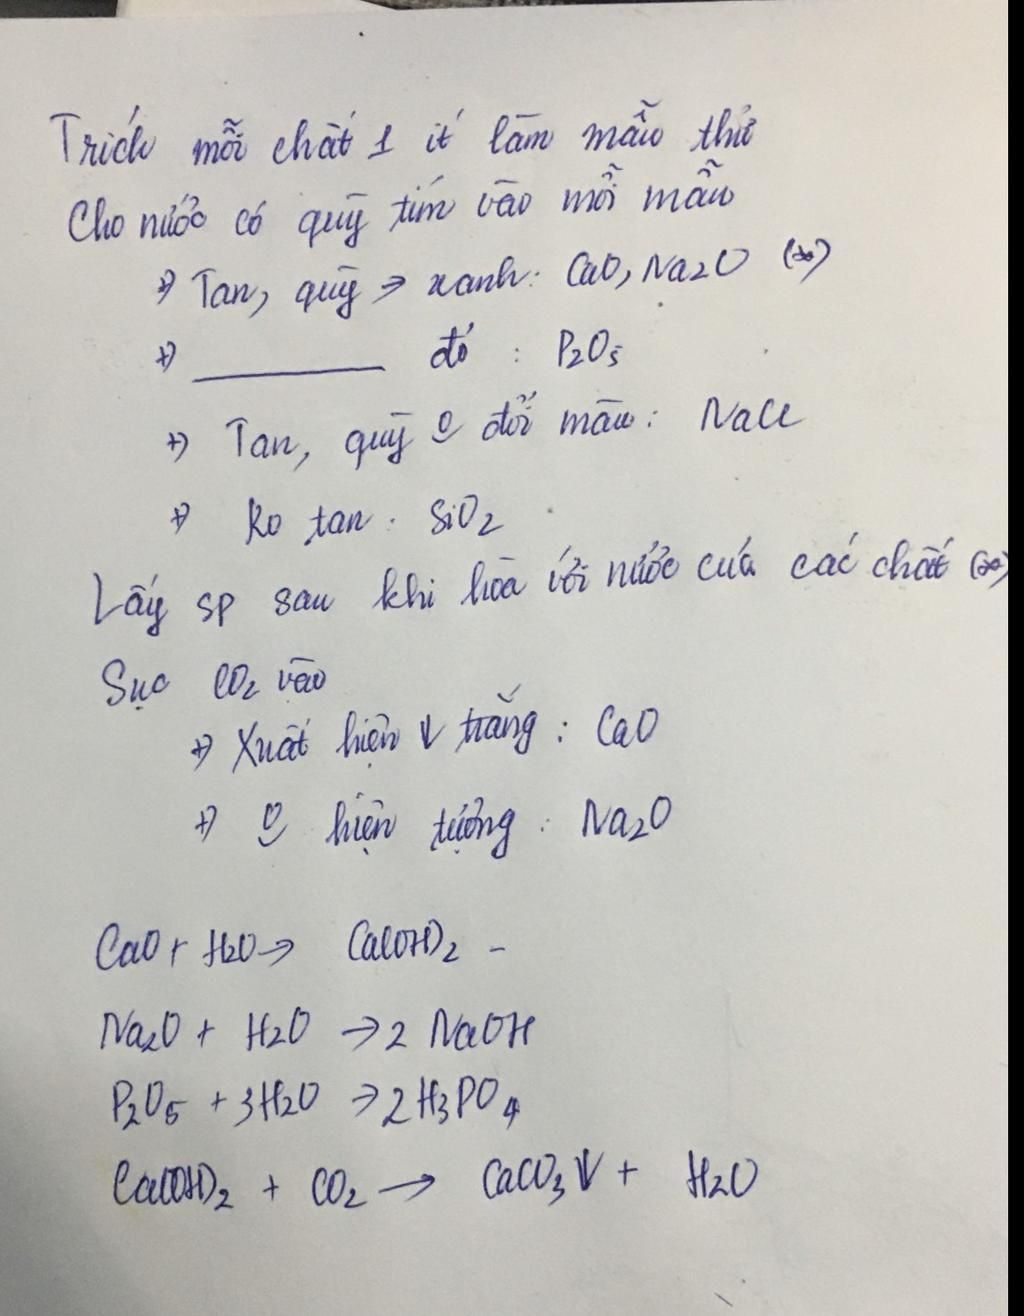 Trích mỗi chất 1 ít làm mẫu thử
Cho nước có quỳ tím vào mỗi mẫu
+) Tan, quỳ → xanh: CaO, Na2O (*)
+) ———— đỏ : P2O5
+) Tan, quỳ 0 đổi màu: NaCl
+) Ko tan: SiO2
Lấy sp sau khi hòa với nước của các chất (*)
Sục CO2 vào
+) Xuất hiện ↓ trắng: CaO
+) 0 hiện tượng: Na2O
CaO + H2O → Ca(OH)2 -
Na2O + H2O → 2 NaOH
P2O5 + 3H2O → 2H3PO4
Ca(OH)2 + CO2 → CaCO3↓ + H2O